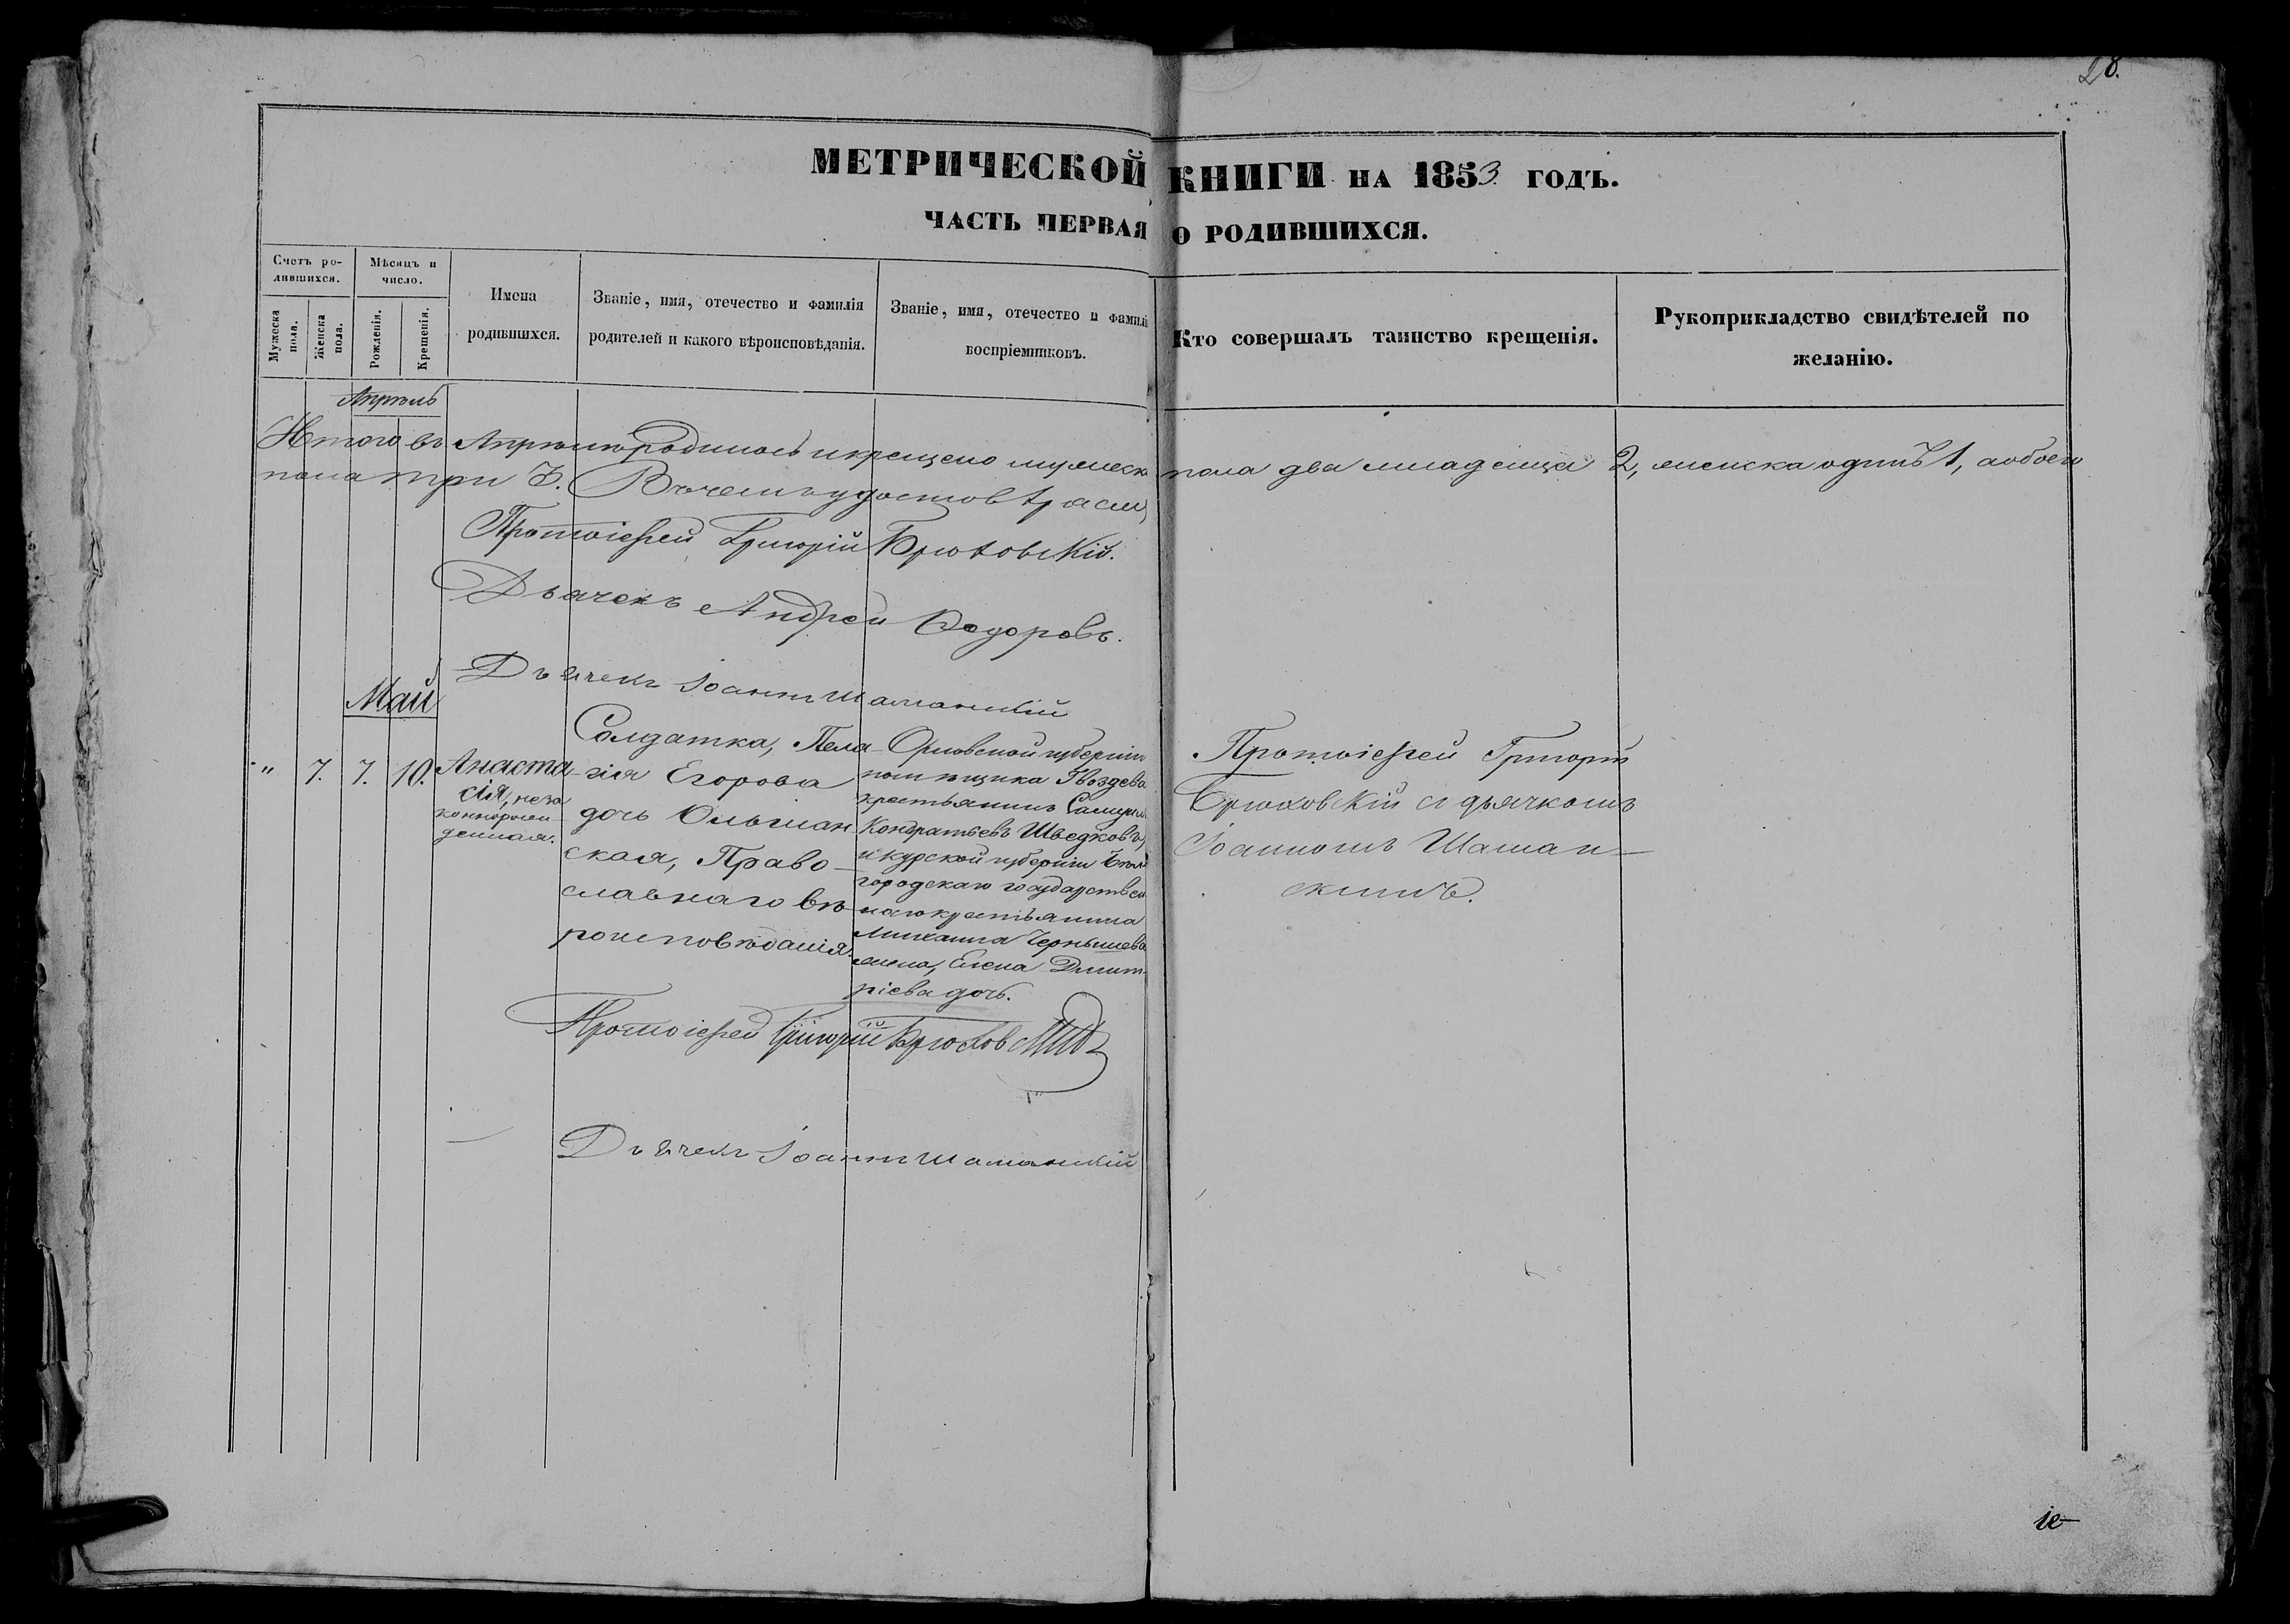 28.
МЕТРИЧЕСКОЙ КНИГИ НА 1853 ГОДЪ.
ЧАСТЬ ПЕРВАЯ О РОДИВШИХСЯ.
Счетъ ро-
дившихся.
Мужеска
пола.
Женска
пола.
Мѣсяцъ и
число.
Рожденія.
Крещенія.
Имена
родившихся.
Званіе, имя, отечество и фамилія
родителей и какого вѣроисповѣданія.
Званіе, имя, отечество и фамилі
воспріемниковъ.
Кто совершалъ таинство крещенія.
Рукоприкладство свидѣтелей по
желанію.
Апрѣль
Итого въ Апрѣлѣ родилось и крещено мужеск пола два младенца 2, женска одинъ 1, а обоего
пола три 3. Въ чемъ удостовѣрѧем
Протоіерей Григорій Брюховскій.
Дьячекъ Андрей Ѳедоровъ.
Дьячекъ Іоаннъ Шаманскій
Май
" 7. 7. 10.
Анаста
сія, неза
коннорож
денная.
Солдатка, Пела
гія Егорова
дочь Ольшан
ская, Право
славнаго вѣ
роисповѣданія.
Орловской губерніи
помѣщика Гвоздева
крестьянинъ
Кондратьевъ Шведковъ,
и Курской губерніи Бѣл
городскаго государствен
наго крестьянина
Михаила Чернышева
жена, Елена Дмит-
ріева дочь.
Протоіерей Григорій
Брюховскій съ дьячкомъ
Іоанномъ Шаман-
скимъ.
Протоіерей Григорій Брюховскій
Дьячекъ Іоаннъ Шаманскій
іе-